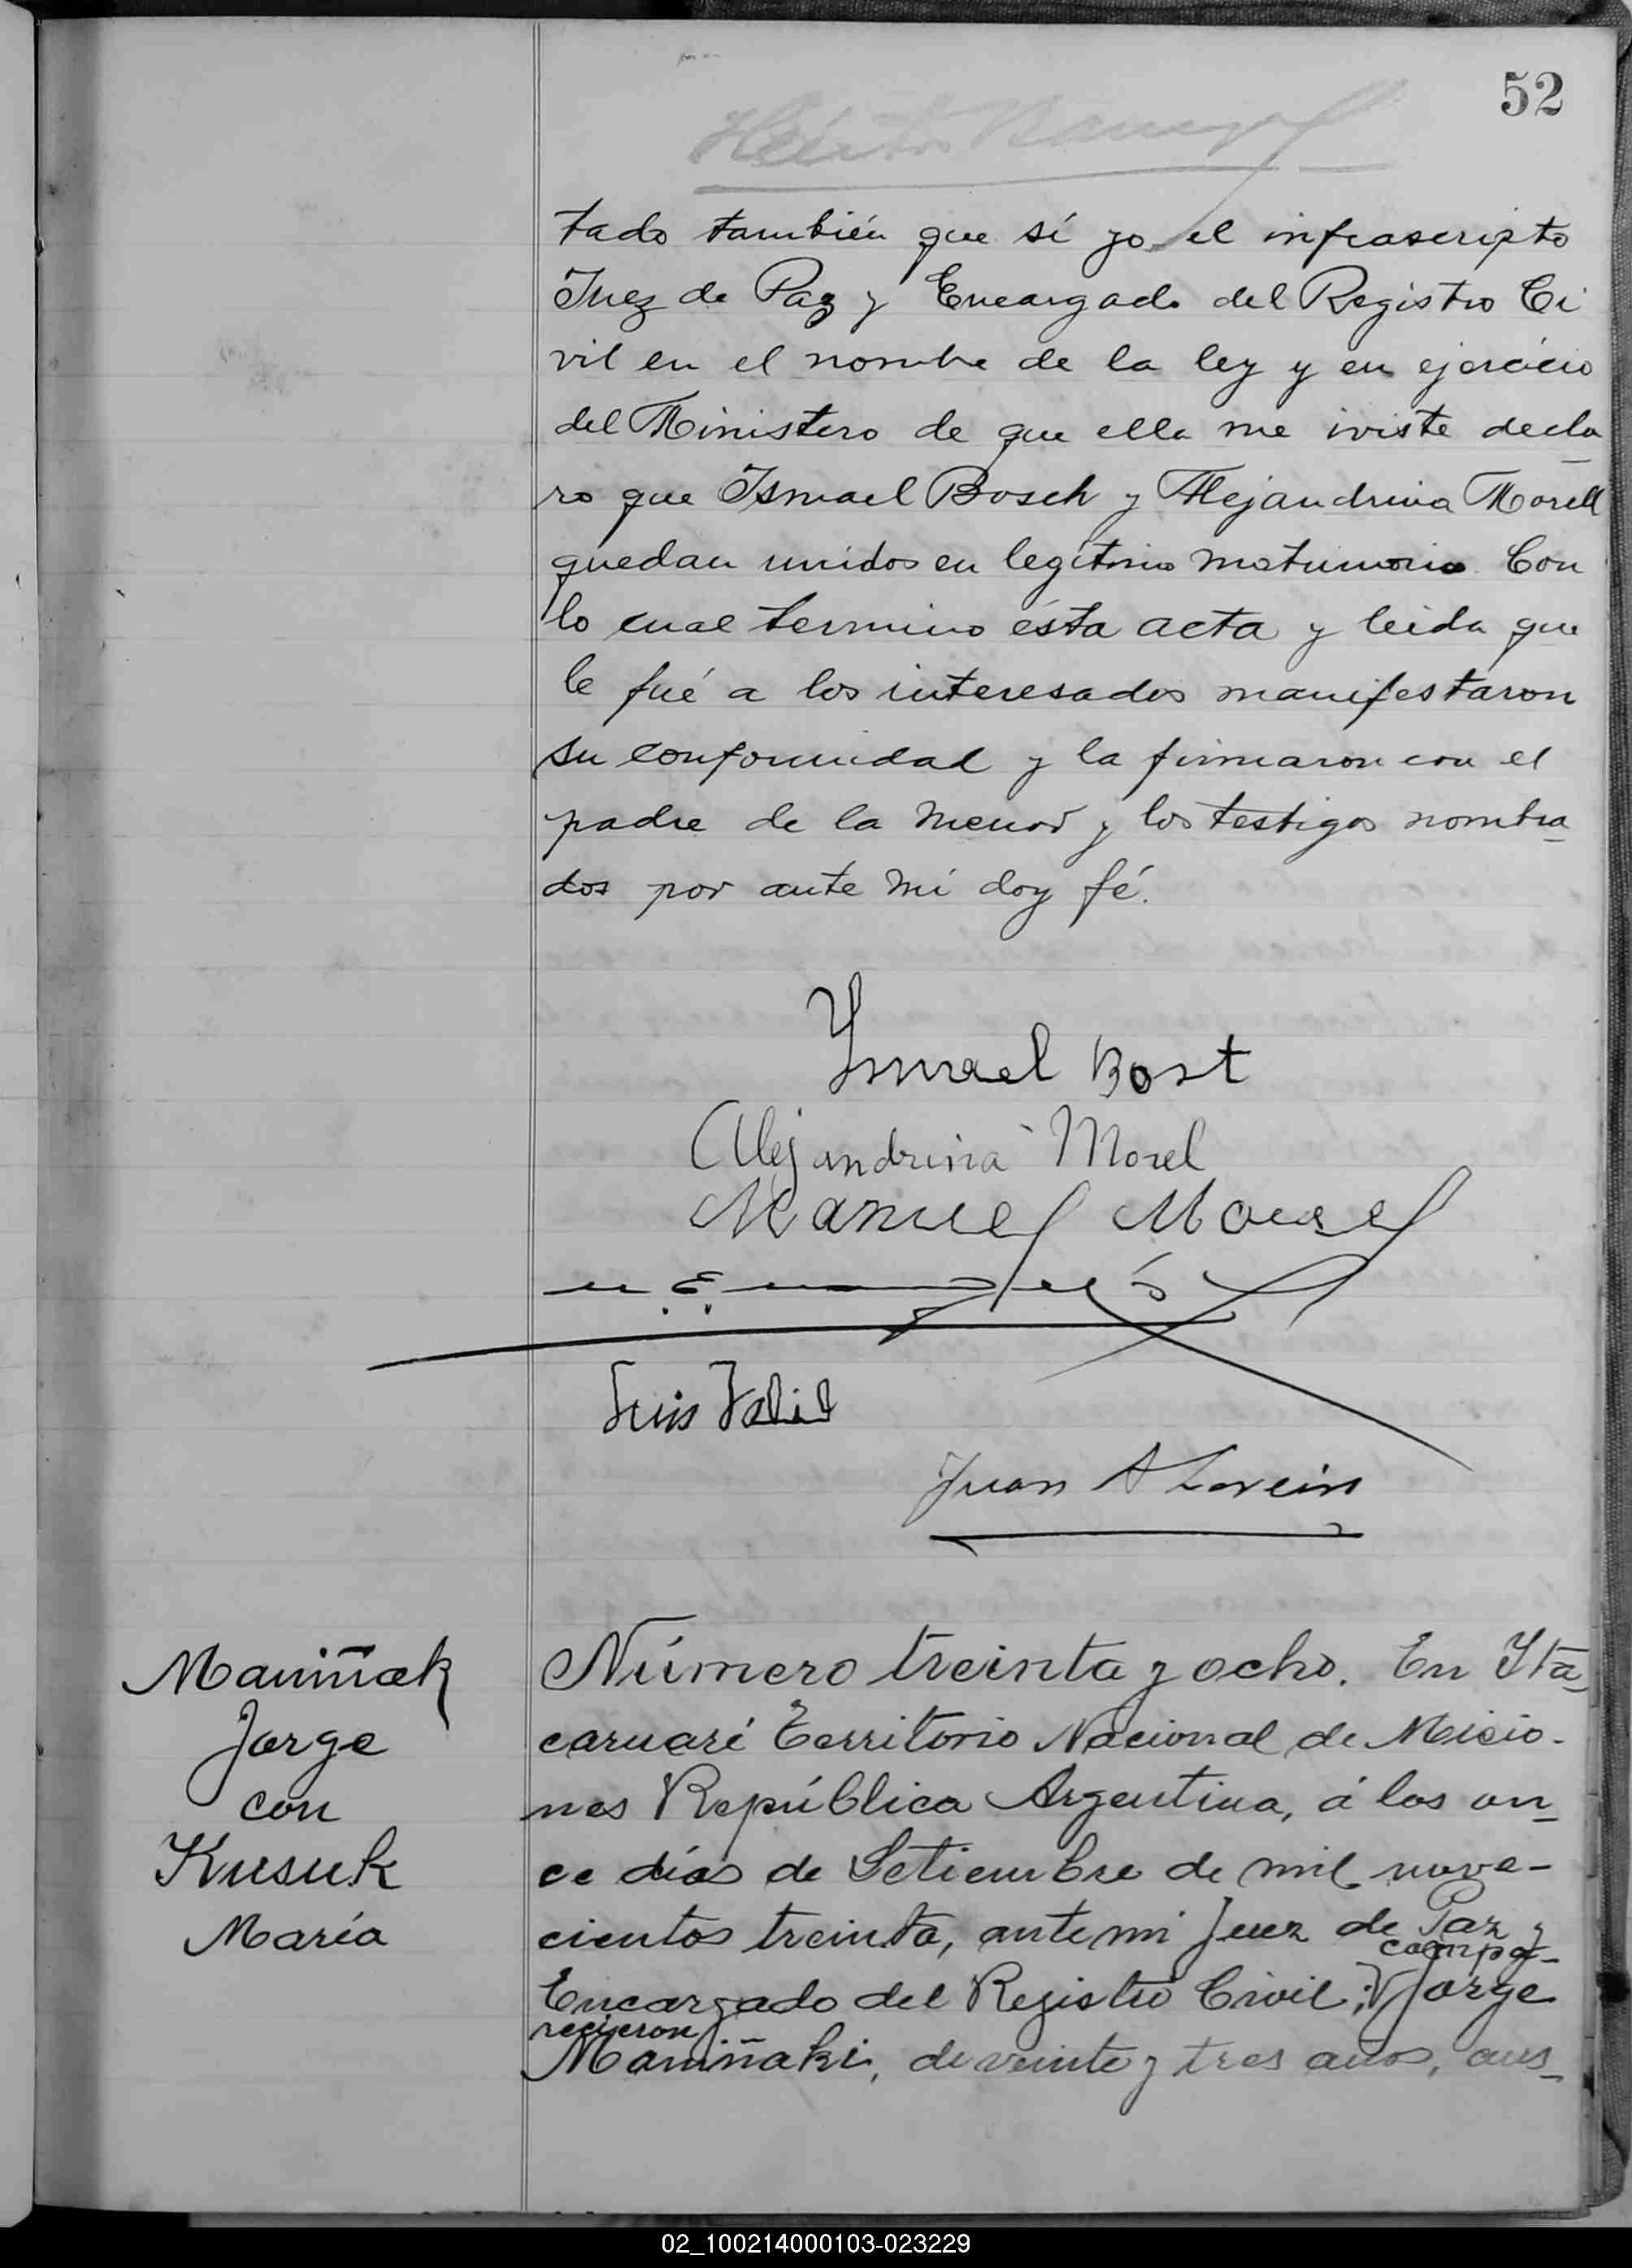 52
tado también que sí yo el infrascripto
Juez de Paz y Encargado del Registro Ci
vil en el nombre de la ley y en ejercicio
del Ministero de que ella me iviste decla
ro que Ismael Bosch y Alejandrina Morell
quedan unidos en legítimo matrimonio. Con
lo cual termino ésta acta y leida que
le fué a los interesados manifestaron
su conformidad y la firmaron con el
padre de la menor y los testigos nombra
dos por ante mí doy fé.
Ysmael Bost
Alejandrina Morel
Manuel Morel
Luis
Juan A
Maniñak
Jorge
con
Kusuk
María
Número treinta y ocho. En Ita
caruaré Territorio Nacional de Misio-
nes República Argentina, á los on
ce días de Setiembre de mil nove-
cientos treinta, ante mi Juez de Paz y
compa-
Encargado del Registro Civil, Jorge
recieron
Maniñaki, de veinte y tres años, aus
02_100214000103-023229